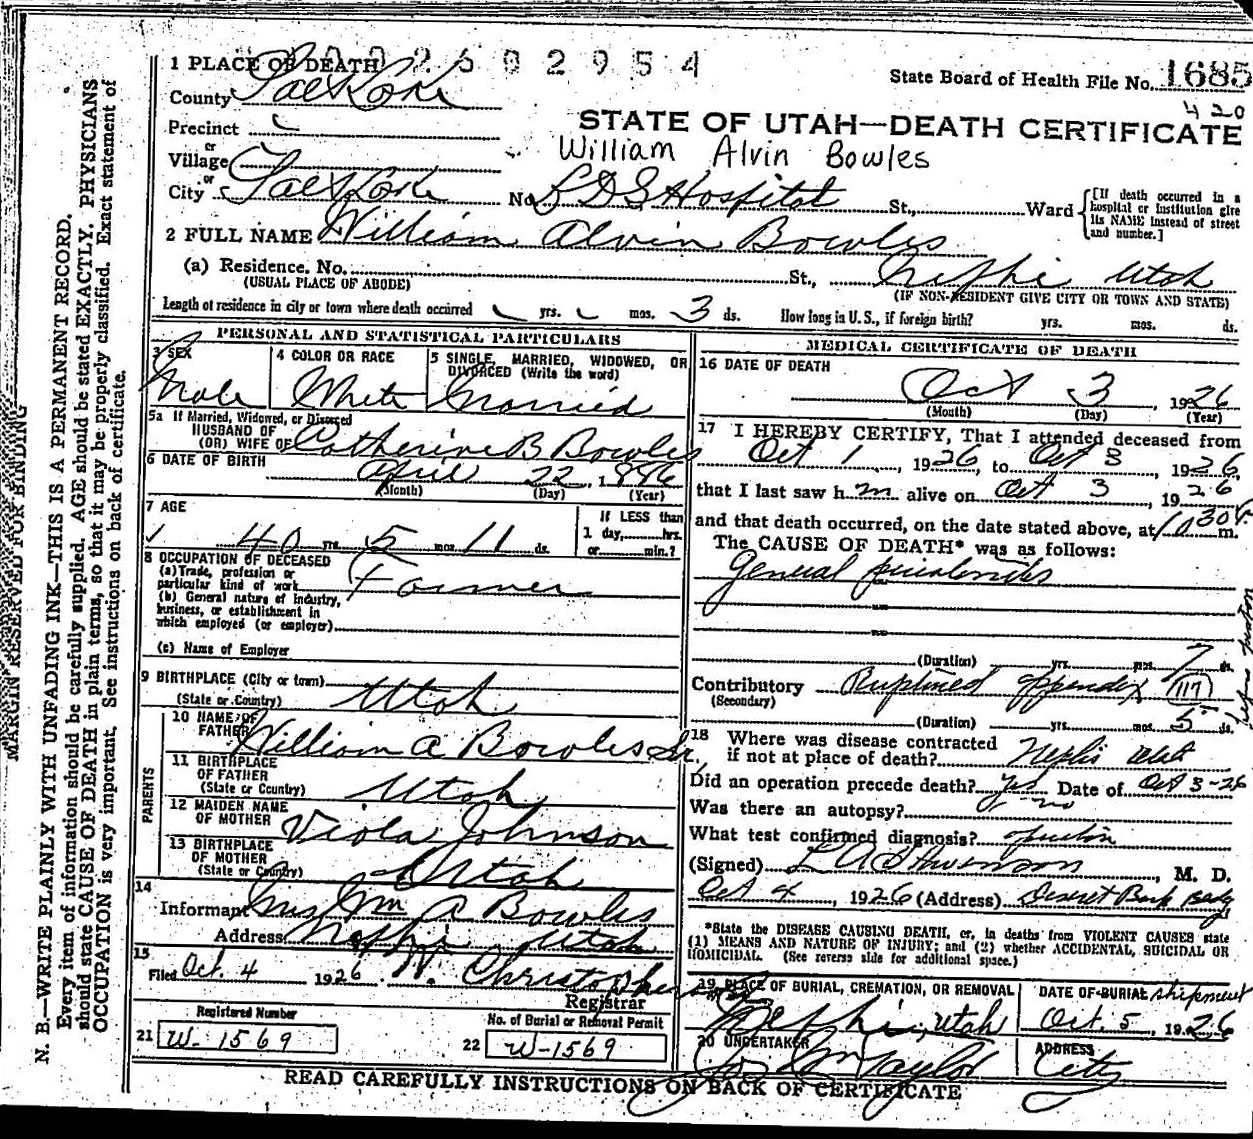 1 PLACE OF DEATH 2602954
State Board of Health File No. 1685
County Salt Lake
420
STATE OF UTAH—DEATH CERTIFICATE
Precinct
William Alvin Bowles
or
Village
or
City Salt Lake No. L D S Hospital St., Ward
[If death occurred in a hospital or institution give its NAME instead of street and number.]
2 FULL NAME William Alvin Bowles
(a) Residence. No. St., Nephi Utah
(USUAL PLACE OF ABODE) (IF NON-RESIDENT GIVE CITY OR TOWN AND STATE)
Length of residence in city or town where death occurred yrs. mos. 3 ds. How long in U. S., if foreign birth? yrs. mos. ds.
PERSONAL AND STATISTICAL PARTICULARS
3 SEX 4 COLOR OR RACE 5 SINGLE, MARRIED, WIDOWED, OR DIVORCED (Write the word)
Male White Married
5a If Married, Widowed, or Divorced
HUSBAND OF
(OR) WIFE OF Catherine B Bowles
6 DATE OF BIRTH April 22, 1886
(Month) (Day) (Year)
7 AGE
If LESS than
40 yrs. 5 mos. 11 ds. 1 day, hrs.
or min.?
8 OCCUPATION OF DECEASED
(a) Trade, profession or
particular kind of work Farmer
(b) General nature of industry,
business, or establishment in
which employed (or employer)
(c) Name of Employer
9 BIRTHPLACE (City or town)
(State or Country) Utah
PARENTS
10 NAME OF
FATHER William A Bowles Sr.
11 BIRTHPLACE
OF FATHER
(State or Country) Utah
12 MAIDEN NAME
OF MOTHER Viola Johnson
13 BIRTHPLACE
OF MOTHER
(State or Country) Utah
14
Informant Mrs Wm A Bowles
Address Nephi Utah
15
Filed Oct. 4 1926 W. Christopher
Registrar
Registered Number No. of Burial or Removal Permit
21 W-1569 22 W-1569
MEDICAL CERTIFICATE OF DEATH
16 DATE OF DEATH
Oct 3, 1926
(Month) (Day) (Year)
17 I HEREBY CERTIFY, That I attended deceased from
Oct 1, 1926, to Oct 3, 1926,
that I last saw h m alive on Oct 3 1926
and that death occurred, on the date stated above, at 10 30 m.
The CAUSE OF DEATH* was as follows:
General
(Duration) yrs. mos. 7 ds.
Contributory Ruptured appendix 117
(Secondary)
(Duration) yrs. mos. 5 ds.
18 Where was disease contracted
if not at place of death? Nephi Utah
Did an operation precede death? Yes Date of Oct 3-26
Was there an autopsy? no
What test confirmed diagnosis?
(Signed) M. D.
Oct 4, 1926 (Address) Deseret Bank Bldg
*State the DISEASE CAUSING DEATH, or, in deaths from VIOLENT CAUSES state
(1) MEANS AND NATURE OF INJURY; and (2) whether ACCIDENTAL, SUICIDAL OR
HOMICIDAL. (See reverse side for additional space.)
19 PLACE OF BURIAL, CREMATION, OR REMOVAL DATE OF BURIAL shipment
Nephi, Utah Oct. 5, 1926
20 UNDERTAKER ADDRESS
Jos Wm Taylor City
READ CAREFULLY INSTRUCTIONS ON BACK OF CERTIFICATE
MARGIN RESERVED FOR BINDING
N. B.—WRITE PLAINLY WITH UNFADING INK—THIS IS A PERMANENT RECORD.
Every item of information should be carefully supplied. AGE should be stated EXACTLY. PHYSICIANS
should state CAUSE OF DEATH in plain terms, so that it may be properly classified. Exact statement of
OCCUPATION is very important. See instructions on back of certificate.